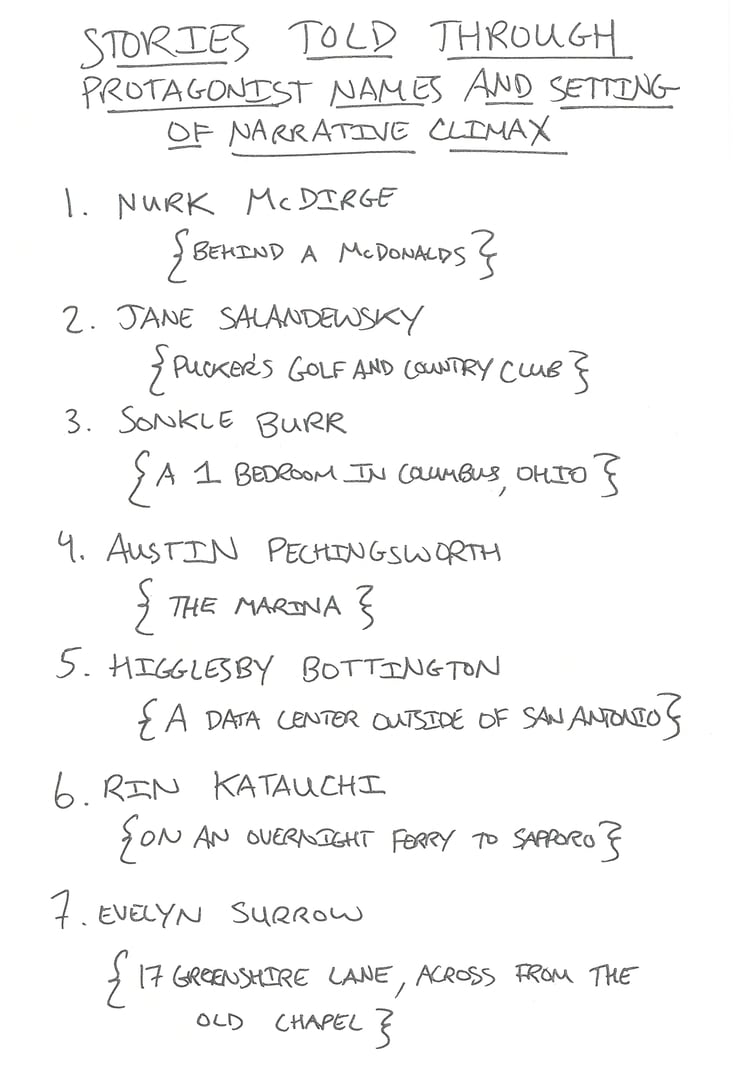 STORIES TOLD THROUGH
PROTAGONIST NAMES AND SETTING
OF NARRATIVE CLIMAX
1. NURK McDIRGE
{BEHIND A McDONALDS}
2. JANE SALANDEWSKY
{PUCKER'S GOLF AND COUNTRY CLUB}
3. SONKLE BURR
{A 1 BEDROOM IN COLUMBUS, OHIO}
4. AUSTIN PECHINGSWORTH
{THE MARINA}
5. HIGGLESBY BOTTINGTON
{A DATA CENTER OUTSIDE OF SAN ANTONIO}
6. RIN KATAUCHI
{ON AN OVERNIGHT FERRY TO SAPPORO}
7. EVELYN SURROW
{17 GREENSHIRE LANE, ACROSS FROM THE
OLD CHAPEL}